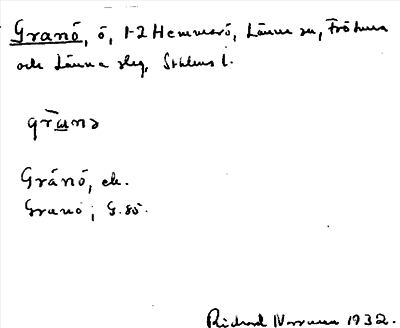 Granö, ö, 1-2 Hemmarö, Länna sn, Frötuna
och Länna slg, Sthlms l.
grana
Gränö, ek.
Granö; G.80.
Richard Norrman 1932.